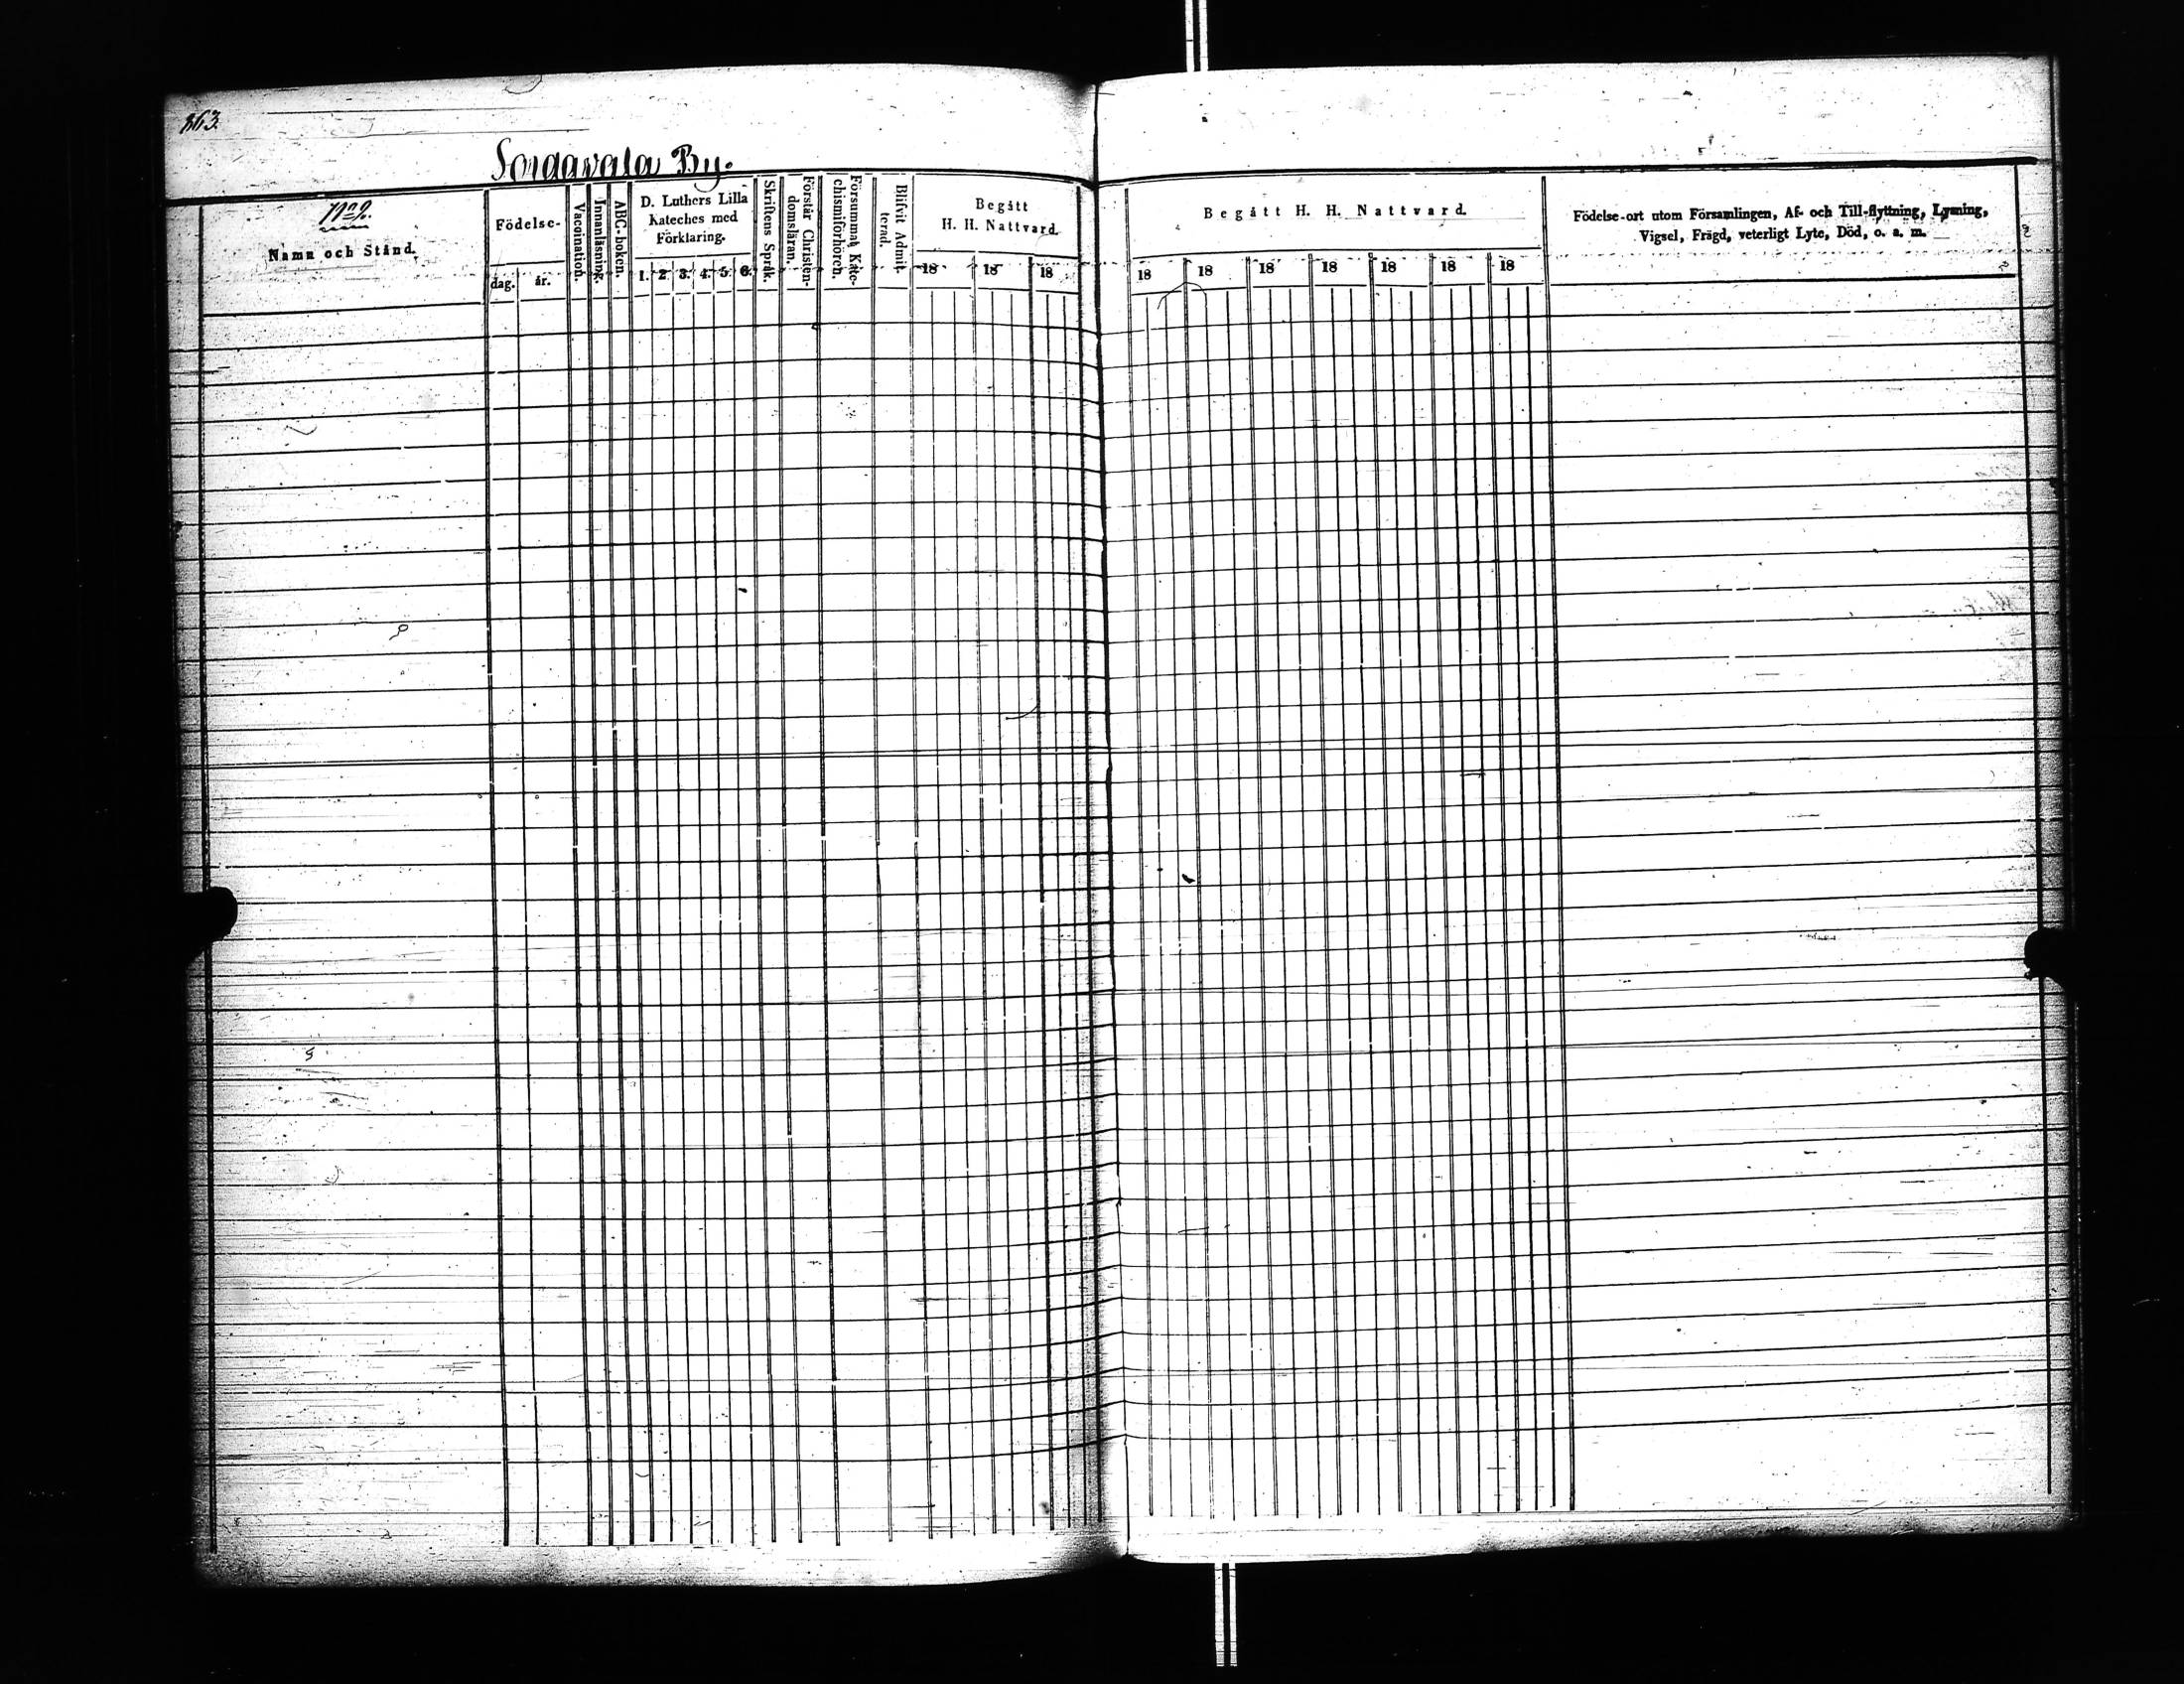 863.
Sorgavala By.
N:o 9.
Namn och Stånd.
Födelse-
dag. år.
Vaccination.
Innanläsning.
ABC-boken.
D. Luthers Lilla
Kateches med
Förklaring.
1. 2. 3. 4. 5. 6.
Skriftens Språk.
Förstår Christen-
domsläran.
Försummat Kate-
chismiförhören.
Blifvit Admit-
terad.
Begått
H. H. Nattvard.
18 18 18
Begått H. H. Nattvard.
18 18 18 18 18 18 18
Födelse-ort utom Församlingen, Af- och Till-flyttning, Lysning,
Vigsel, Frägd, veterligt Lyte, Död, o. a. m.